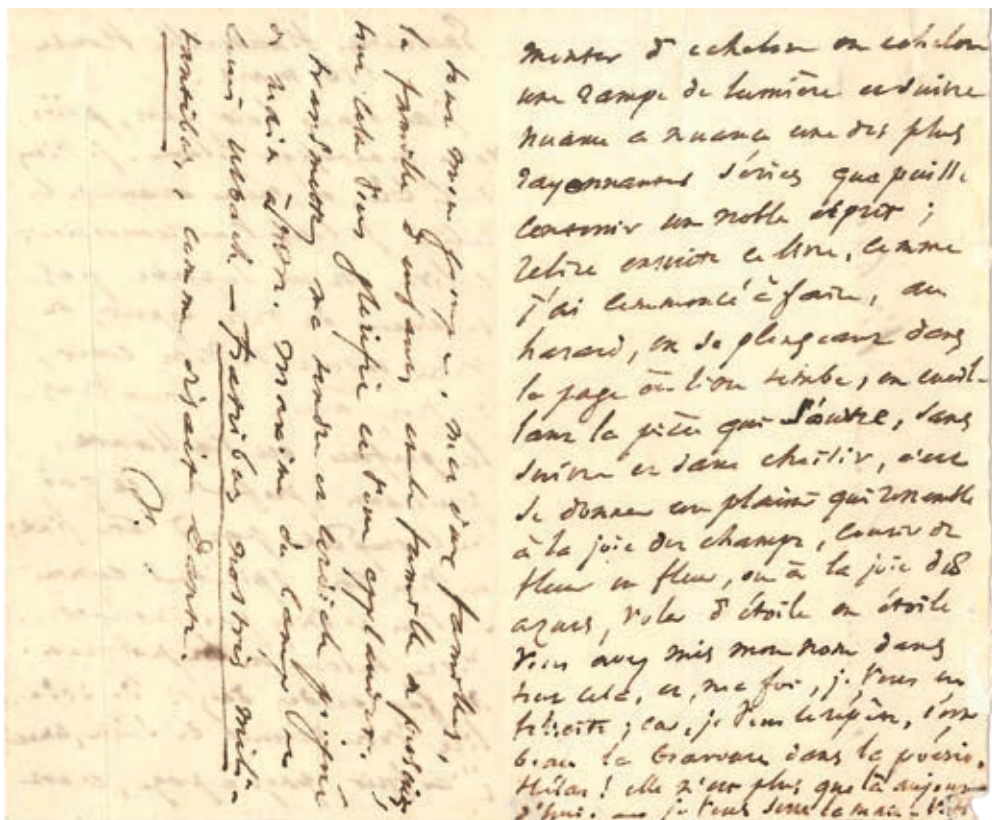 monter d'échelon en échelon
une rampe de lumière et suivre
nuance à nuance une des plus
rayonnantes séries que puisse
contenir un noble esprit ;
relire ensuite ce livre, comme
j'ai commencé à faire, au
hasard, en se plongeant dans
la page où l'on tombe, en cueil-
lant la pièce qui s'ouvre, sans
suivre et sans choisir, c'est
se donner un plaisir qui ressemble
à la joie des champs, courir de
fleur en fleur, ou à la joie des
azurs, voler d'étoile en étoile
Vous avez mis mon nom dans
tout cela, et, ma foi, je vous en
félicite ; car, je vous le répète, c'est
beau la bravoure dans la poésie.
Hélas ! elle n'est plus que là aujour-
d'hui. — je vous serre la main – V. H
tout mon groupe, mes deux familles,
la famille d'enfants et la famille
tout cela vous glorifie et vous applaudit.
transmettez ma tendre et cordiale
de main à Maxime du Camp
— fratribus nostris
comme disait Dante.
V.